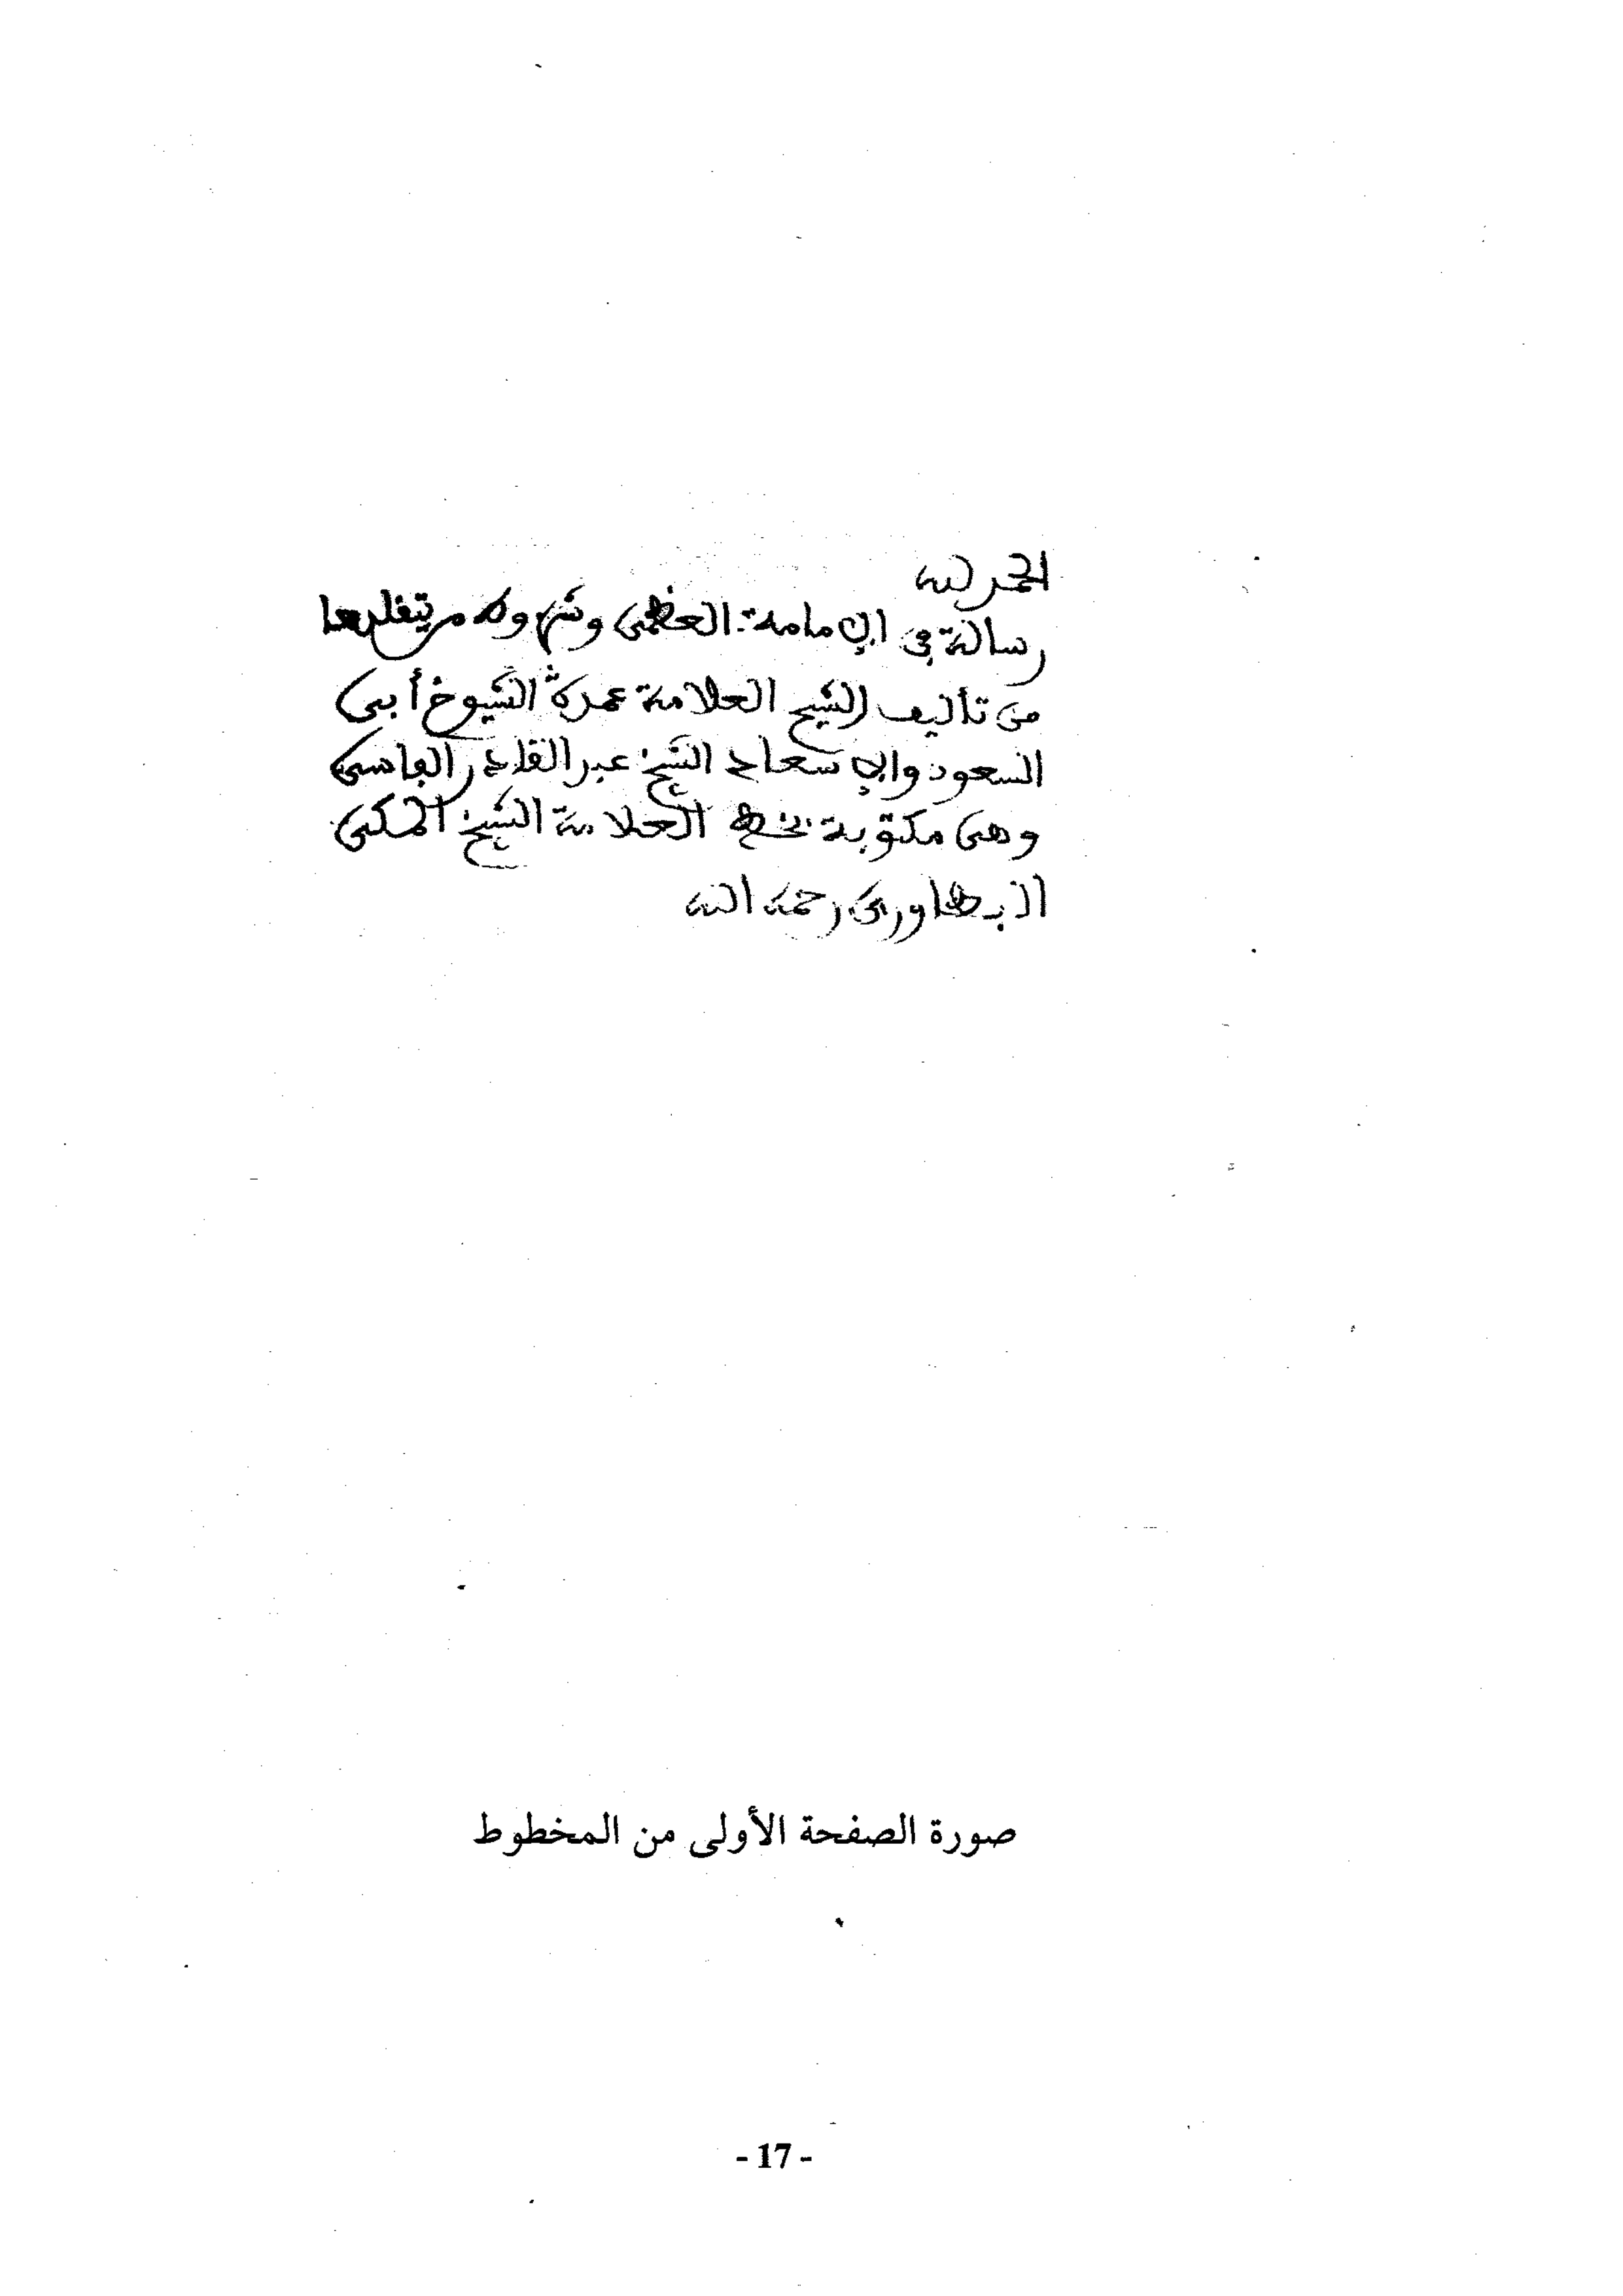 الحمد لله
رسالة في الإمامة العظمى وشروط من يتقلدها
من تأليف الشيخ العلامة عمدة الشيوخ أبي
السعود والإسعاد الشيخ عبد القادر الفاسي
وهي مكتوبة بخط العلامة الشيخ المكي
البطاوري رحمه الله
صورة الصفحة الأولى من المخطوط
- 17 -